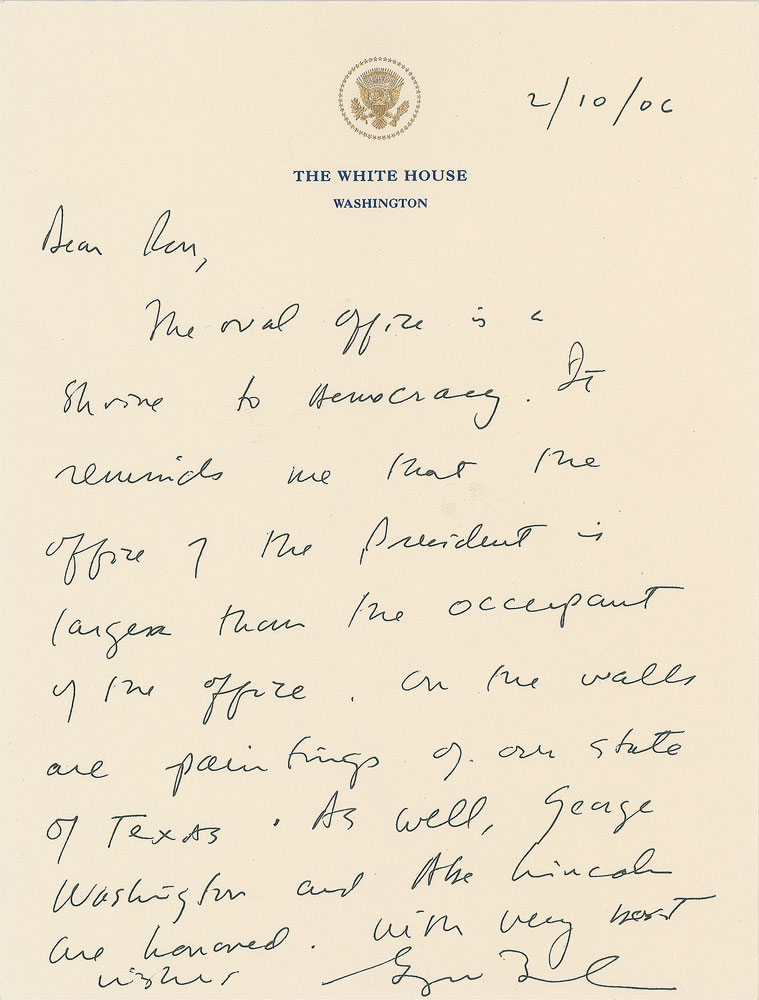 2/10/06
THE WHITE HOUSE
WASHINGTON
Dear Ron,
The oval office is a
Shrine to Democracy. It
reminds me that the
office of the President is
larger than the occupant
of the office. On the walls
are paintings of our state
of Texas. As well, George
Washington and Abe Lincoln
are honored. With very best
wishes George Bush